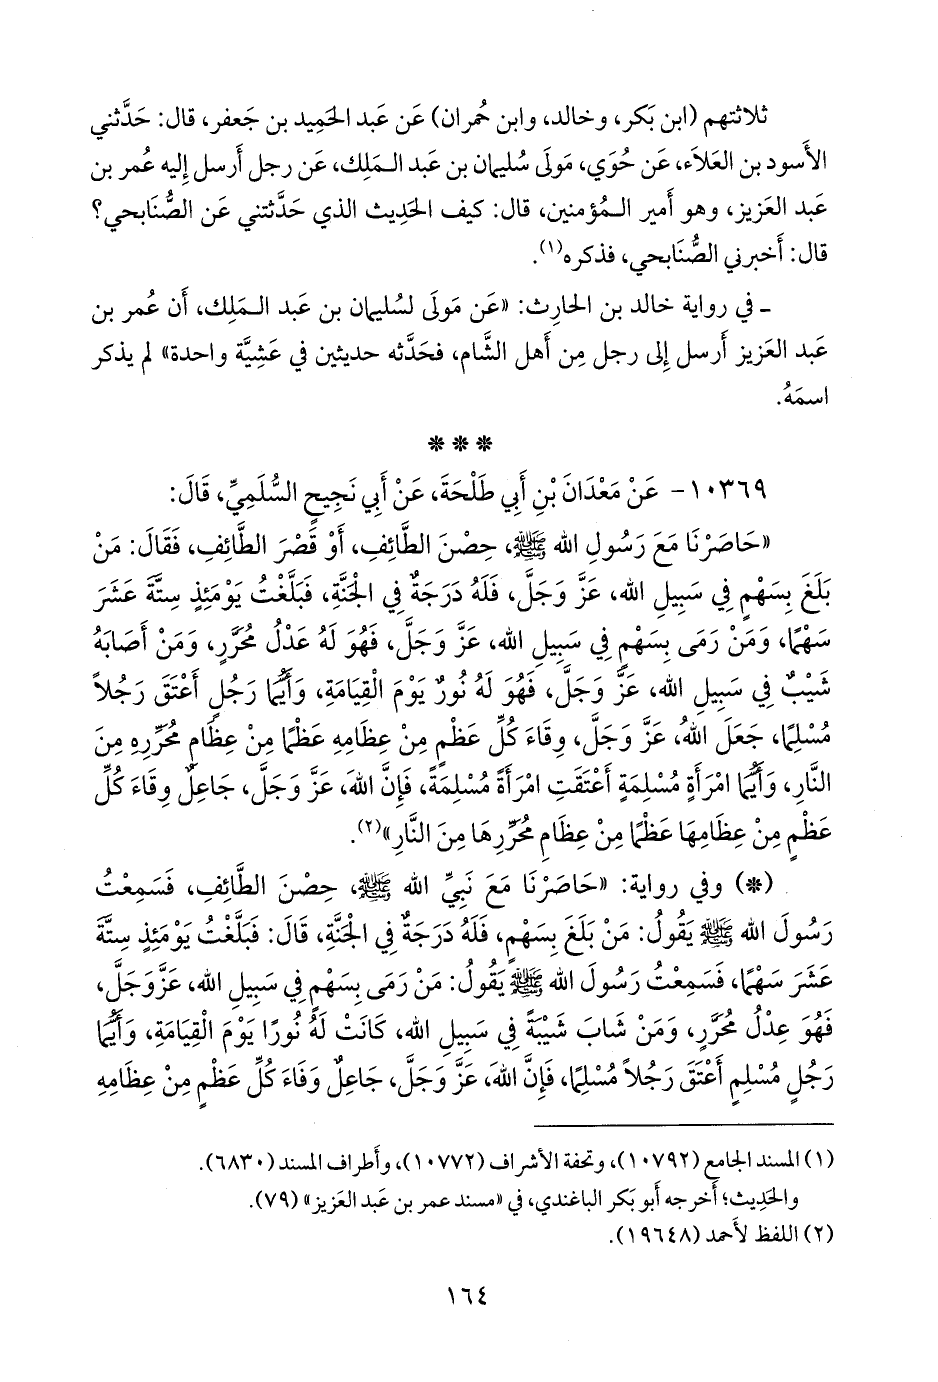 ثلاثتهم (ابن بَكر، وخالد، وابن حُمران) عَن عَبد الحَمِيد بن جَعفر، قال: حَدَّثني
الأَسود بن العَلاَء، عَن حُوَي، مَولَى سُليمان بن عَبد الـمَلِك، عَن رجل أَرسل إِليه عُمر بن
عَبد العَزيز، وهو أَمير الـمُؤمنين، قال: كيف الحَدِيث الذي حَدَّثتني عَن الصُّنَابحي؟
قال: أَخبرني الصُّنَابحي، فذكره(١).
ـ في رواية خالد بن الحارِث: «عَن مَولَى لسُليمان بن عَبد الـمَلِك، أَن عُمر بن
عَبد العَزيز أَرسل إِلى رجل مِن أَهل الشَّام، فحَدَّثه حديثين في عَشِيَّة واحدة» لم يذكر
اسمَهُ.
* * *
١٠٣٦٩- عَنْ مَعْدَانَ بْنِ أَبِي طَلْحَةَ، عَنْ أَبِي نَجِيحٍ السُّلَمِيِّ، قَالَ:
«حَاصَرْنَا مَعَ رَسُولِ الله ﷺ، حِصْنَ الطَّائِفِ، أَوْ قَصْرَ الطَّائِفِ، فَقَالَ: مَنْ
بَلَغَ بِسَهْمٍ فِي سَبِيلِ الله، عَزَّ وَجَلَّ، فَلَهُ دَرَجَةٌ فِي الْجَنَّةِ، فَبَلَّغْتُ يَوْمَئِذٍ سِتَّةَ عَشَرَ
سَهْمًا، وَمَنْ رَمَى بِسَهْمٍ فِي سَبِيلِ الله، عَزَّ وَجَلَّ، فَهُوَ لَهُ عَدْلُ مُحَرَّرٍ، وَمَنْ أَصَابَهُ
شَيْبٌ فِي سَبِيلِ الله، عَزَّ وَجَلَّ، فَهُوَ لَهُ نُورٌ يَوْمَ الْقِيَامَةِ، وَأَيُّمَا رَجُلٍ أَعْتَقَ رَجُلاً
مُسْلِمًا، جَعَلَ اللهُ، عَزَّ وَجَلَّ، وِقَاءَ كُلِّ عَظْمٍ مِنْ عِظَامِهِ عَظْمًا مِنْ عِظَامِ مُحَرِّرِهِ مِنَ
النَّارِ، وَأَيُّمَا امْرَأَةٍ مُسْلِمَةٍ أَعْتَقَتِ امْرَأَةً مُسْلِمَةً، فَإِنَّ اللهَ، عَزَّ وَجَلَّ، جَاعِلٌ وِقَاءَ كُلِّ
عَظْمٍ مِنْ عِظَامِهَا عَظْمًا مِنْ عِظَامِ مُحَرِّرِهَا مِنَ النَّارِ»(٢).
(*) وفي رواية: «حَاصَرْنَا مَعَ نَبِيِّ الله ﷺ، حِصْنَ الطَّائِفِ، فَسَمِعْتُ
رَسُولَ الله ﷺ يَقُولُ: مَنْ بَلَغَ بِسَهْمٍ، فَلَهُ دَرَجَةٌ فِي الْجَنَّةِ، قَالَ: فَبَلَّغْتُ يَوْمَئِذٍ سِتَّةَ
عَشَرَ سَهْمًا، فَسَمِعْتُ رَسُولَ الله ﷺ يَقُولُ: مَنْ رَمَى بِسَهْمٍ فِي سَبِيلِ الله، عَزَّ وَجَلَّ،
فَهُوَ عِدْلُ مُحَرَّرٍ، وَمَنْ شَابَ شَيْبَةً فِي سَبِيلِ الله، كَانَتْ لَهُ نُورًا يَوْمَ الْقِيَامَةِ، وَأَيُّمَا
رَجُلٍ مُسْلِمٍ أَعْتَقَ رَجُلاً مُسْلِمًا، فَإِنَّ اللهَ، عَزَّ وَجَلَّ، جَاعِلٌ وَفَاءَ كُلِّ عَظْمٍ مِنْ عِظَامِهِ
(١) المسند الجامع (١٠٧٩٢)، وتحفة الأشراف (١٠٧٧٢)، وأطراف المسند (٦٨٣٠).
والحَدِيث؛ أَخرجه أَبو بَكر الباغندي، في «مسند عمر بن عَبد العَزيز» (٧٩).
(٢) اللفظ لأَحمد (١٩٦٤٨).
١٦٤